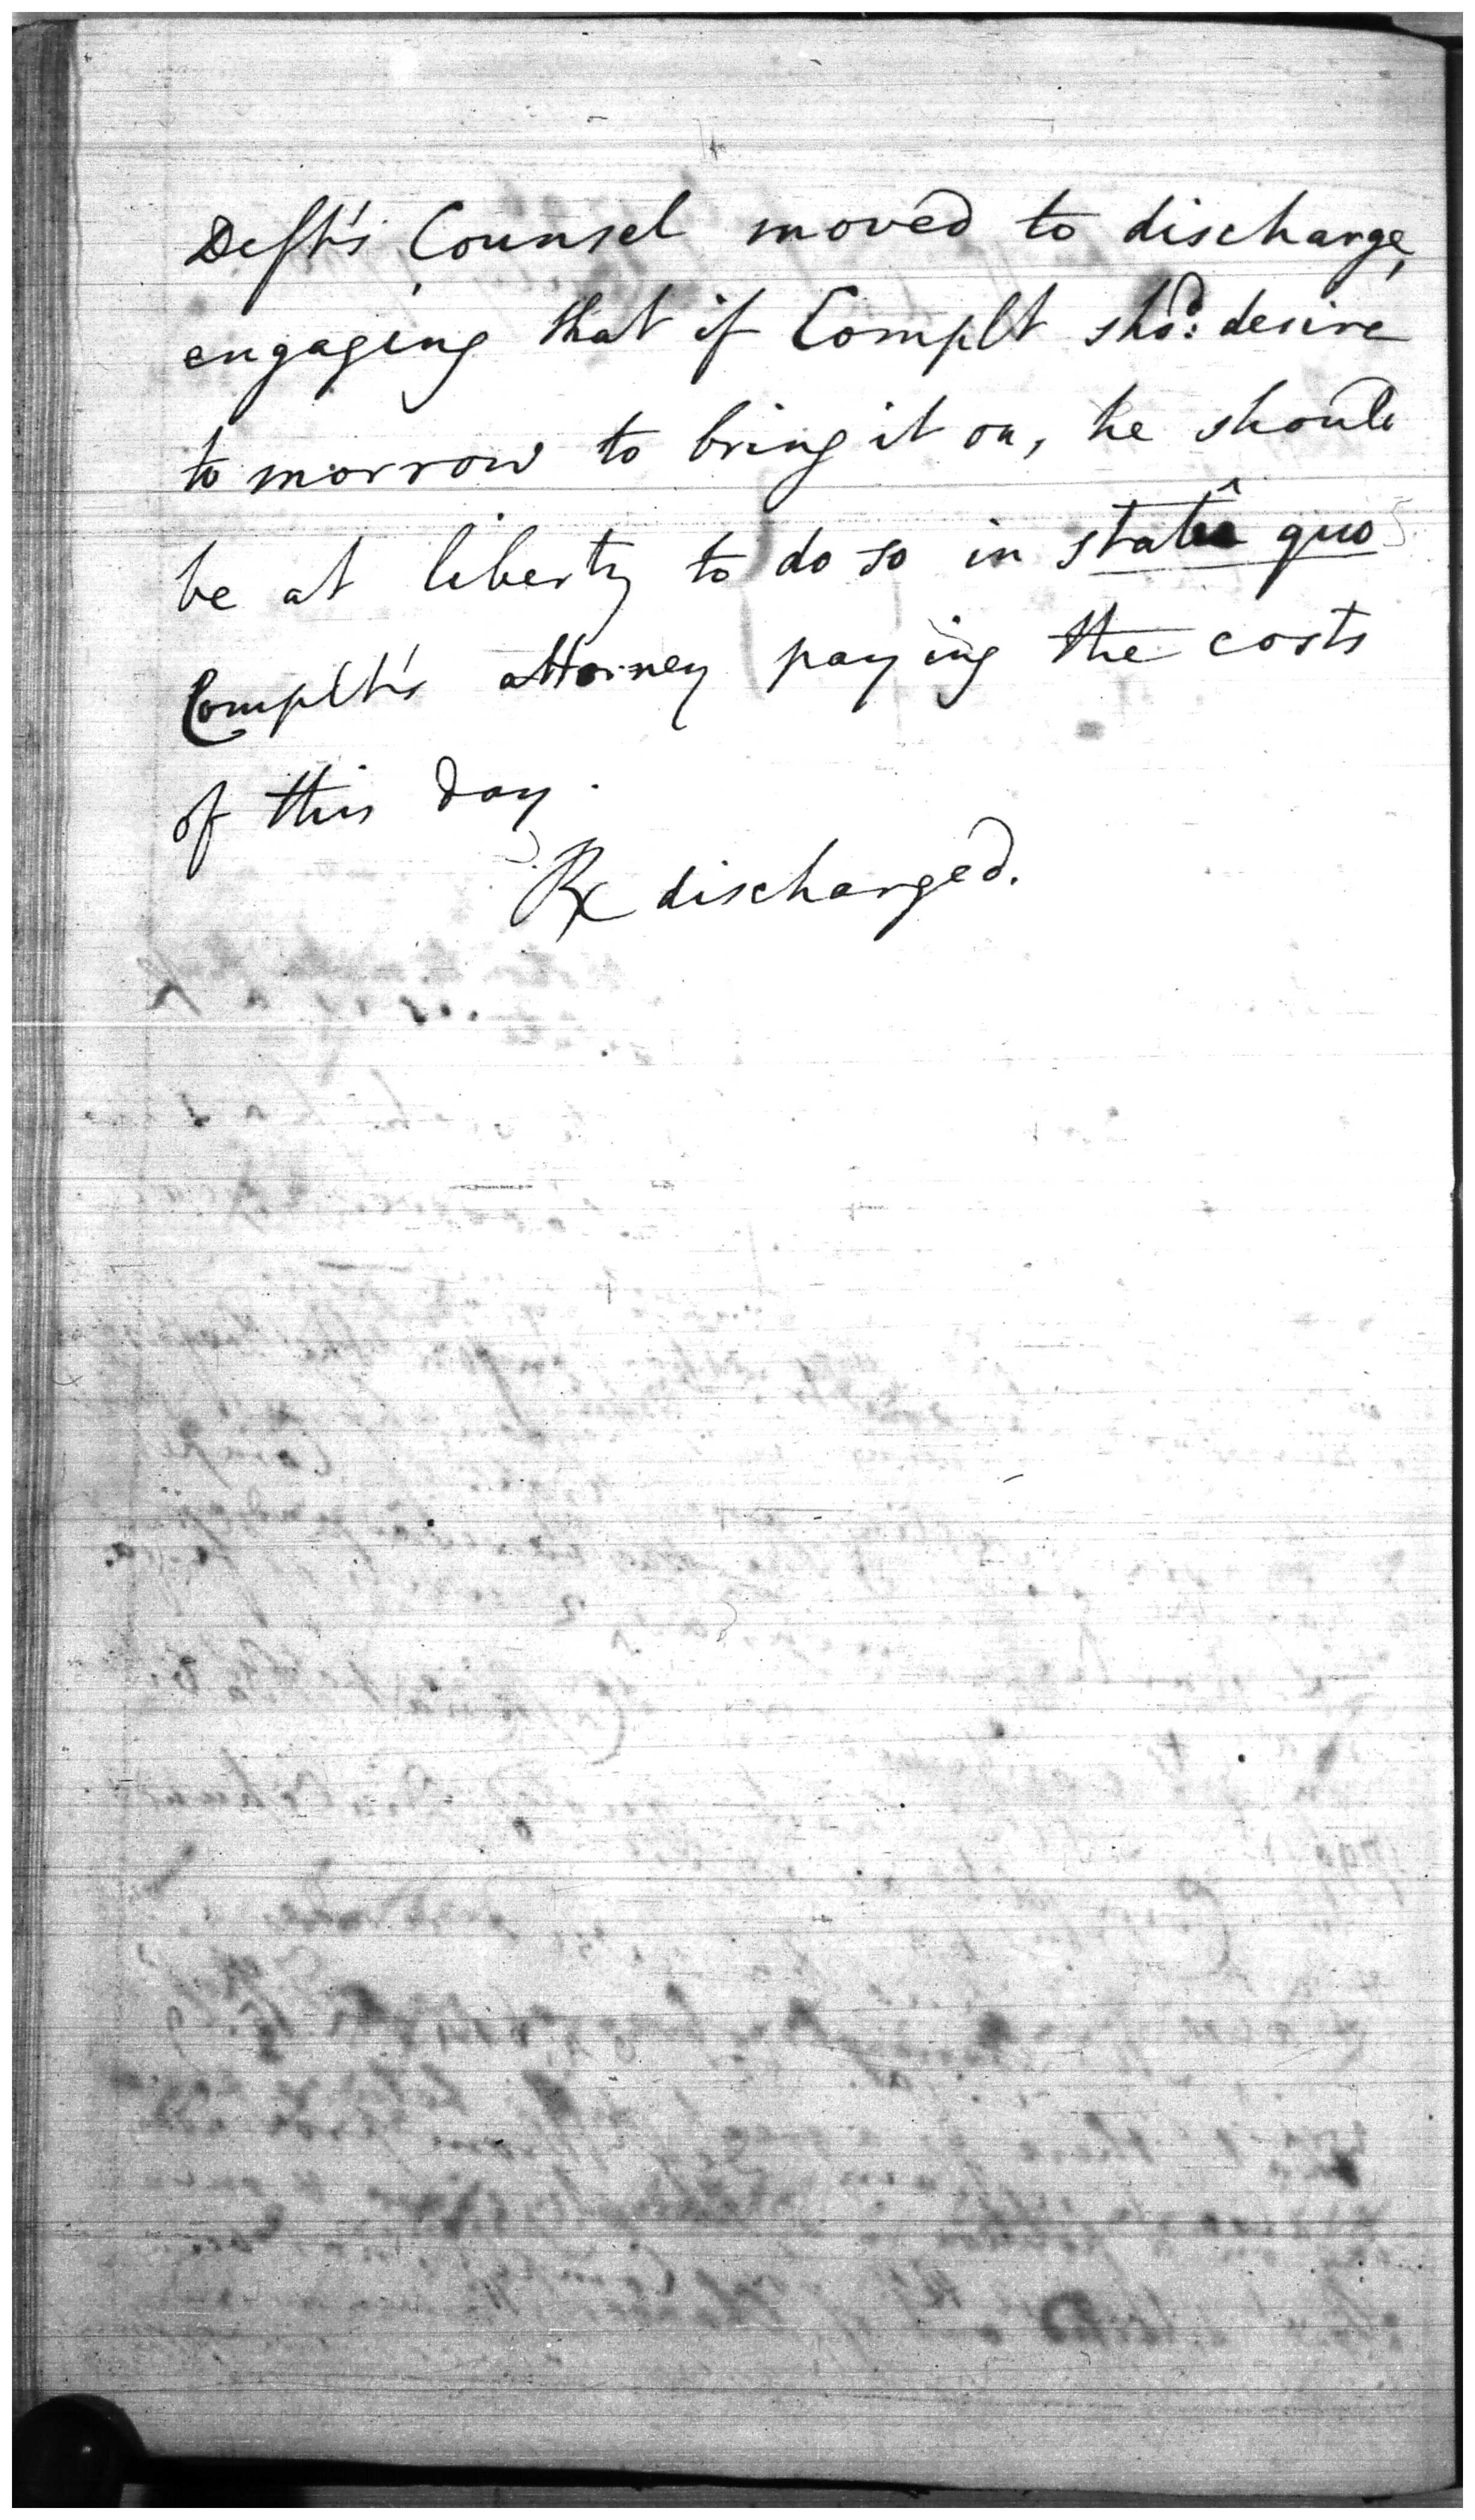 Deft's Counsel moved to discharge,
engaging that if Complt shod: desire
to morrow to bring it on, he should
be at liberty to do so in statû quo
Complt's attorney paying the costs
of this day.
discharged.